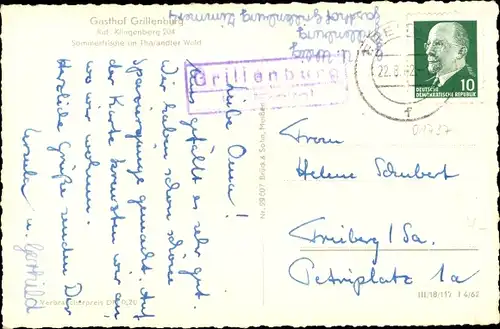 Gasthof Grillenburg
Ruf: Klingenberg 204
Sommerfrische im Tharandter Wald
Liebe Oma!
Uns gefällt es sehr gut.
Wir haben schon schöne
Spaziergänge gemacht. Auf
der Karte kreuzten wir an,
wo wir wohnen.
Herzliche Grüße senden Dir
Ursula u. Gerthild
Verbraucherpreis DM 0,20
Grillenburg
Gasthof Grillenburg Zimmer
Grillenburg
Nr. 99 607 Brück & Sohn, Meißen
22.8.62
10
DEUTSCHE
DEMOKRATISCHE REPUBLIK
f
01737
Frau
Helene Schubert
Freiberg/Sa.
Petriplatz 1a
III/18/117 J 4/62